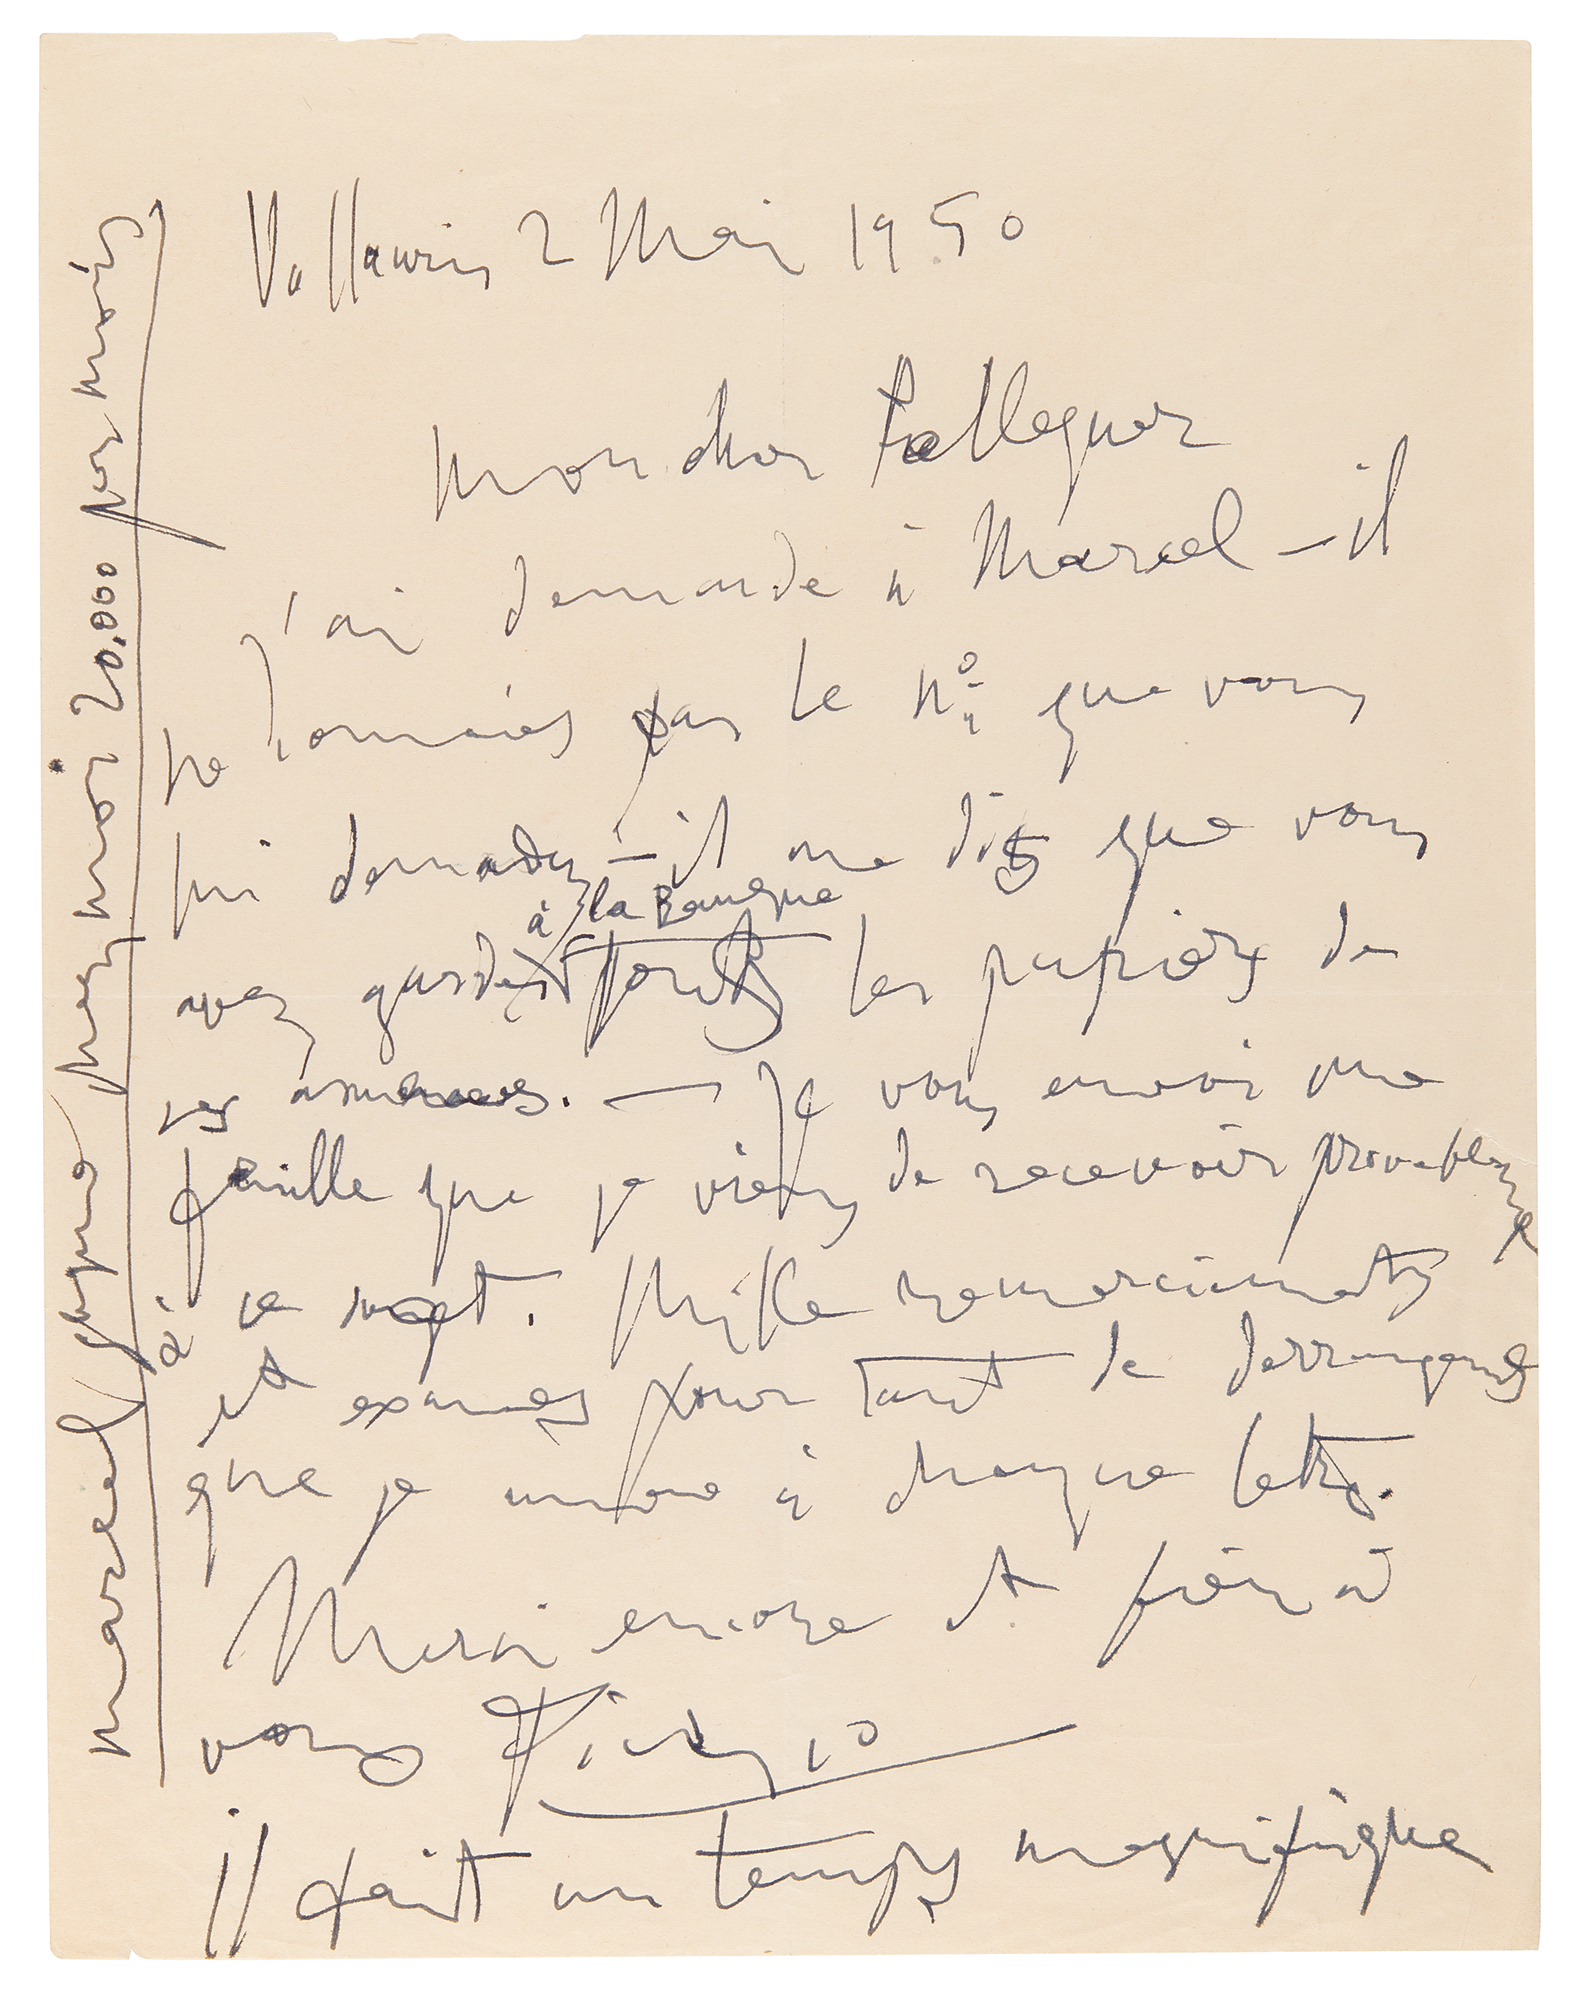 Vallauris 2 Mai 1950
mon cher Pellequer
j'ai demandé à Marcel – il
ne connais pas le Nº que vous
lui demandez – il me dit que vous
à la Banque
avez gardé les papiers de
ses assurances. — Je vous envoi une
feuille que je viens de recevoir
à ce sujet. Mille remerciments
et excuses pour tant de
que je à chaque lettre.
Merci encore et bien à
vous Picasso
il fait un temps magnifique
Marcel chez moi 20.000 par mois